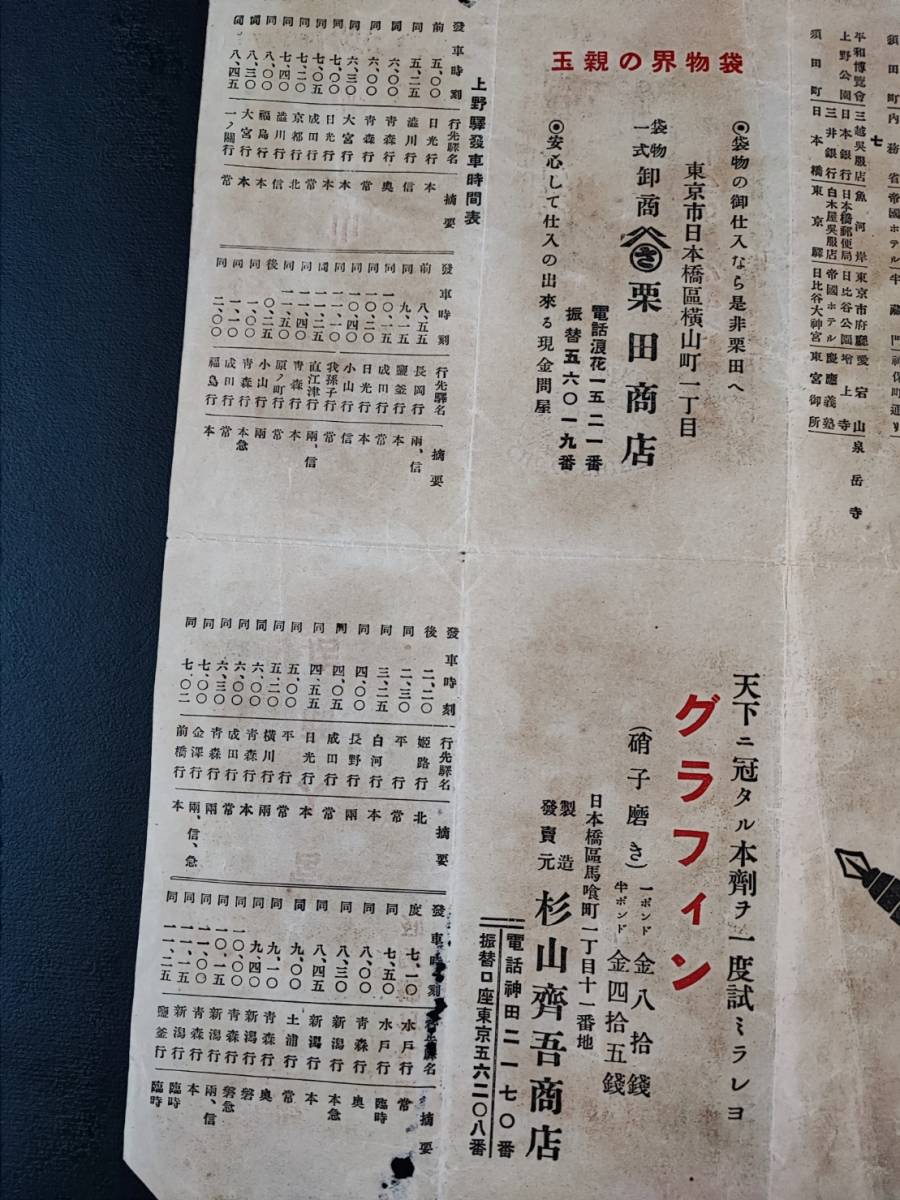 須田町內務省帝國ホテル半藏門神保町通リ
七
平和博覽會三越吳服店魚河岸東京市府廳愛宕山泉岳寺
上野公園日本銀行日本橋郵便局日比谷公園增上寺
三井銀行白木屋吳服店帝國ホテル慶應義塾
須田町日本橋東京驛日比谷大神宮東宮御所
袋物界の親玉
◉袋物の御仕入なら是非栗田へ
東京市日本橋區橫山町一丁目
袋物一式卸商 さ 栗田商店
電話浪花一五二一番
振替五六〇一九番
◉安心して仕入の出來る現金問屋
上野驛發車時間表
發車時刻 行先驛名 摘要
前 五、〇〇 日光行 本
同 五、二五 澁川行 信
同 六、〇〇 青森行 奧
同 六、三〇 大宮行 本
同 七、〇〇 日光行 本
同 七、〇五 成田行 常
同 七、二〇 京都行 北
同 七、四〇 澁川行 信
同 八、〇〇 福島行 本
同 八、三〇 大宮行 本
同 八、四五 一ノ關行 常
發車時刻 行先驛名 摘要
前 八、五五 長岡行 兩、信
同 九、一五 鹽釜行 本
同 一〇、一五 成田行 常
同 一〇、二〇 日光行 本
同 一〇、四〇 小山行 信
同 一一、一〇 我孫子行 常
同 一一、二五 直江津行 兩、信
同 一一、四〇 青森行 本
同 一一、五〇 原ノ町行 常
後 〇、二五 小山行 兩
同 一、〇〇 青森行 本急
同 一、一〇 成田行 常
同 二、〇〇 福島行 本
天下ニ冠タル本劑ヲ一度試ミラレヨ
グラフィン
(硝子磨き)
一ポンド 金八拾錢
半ポンド 金四拾五錢
日本橋區馬喰町一丁目十一番地
製造發賣元 杉山齊吾商店
電話神田二一七〇番
振替口座東京五六二〇八番
發車時刻 行先驛名 摘要
後 二、二〇 姬路行 北
同 二、三〇 平行 常
同 三、二五 白河行 本
同 四、〇〇 長野行 兩
同 四、〇五 成田行 常
同 四、五五 日光行 本
同 五、〇〇 平行 常
同 五、二〇 橫川行 兩
同 六、〇〇 青森行 本
同 六、〇〇 成田行 常
同 六、三〇 青森行 兩
同 七、〇〇 金澤行 兩、信、急
同 七、〇二 前橋行 本
發車時刻 摘要
後 七、一〇 水戶行 常
同 七、五〇 水戶行 臨時
同 八、〇〇 青森行 奧
同 八、三〇 新潟行 本急
同 八、四五 新潟行 本
同 九、〇〇 土浦行 常
同 九、一〇 青森行 奧
同 九、四〇 新潟行 磐
同 一〇、〇〇 青森行 磐急
同 一〇、一五 新潟行 兩、信
同 一一、〇〇 青森行 本
同 一一、一五 新潟行 臨時
同 一一、二五 鹽釜行 臨時